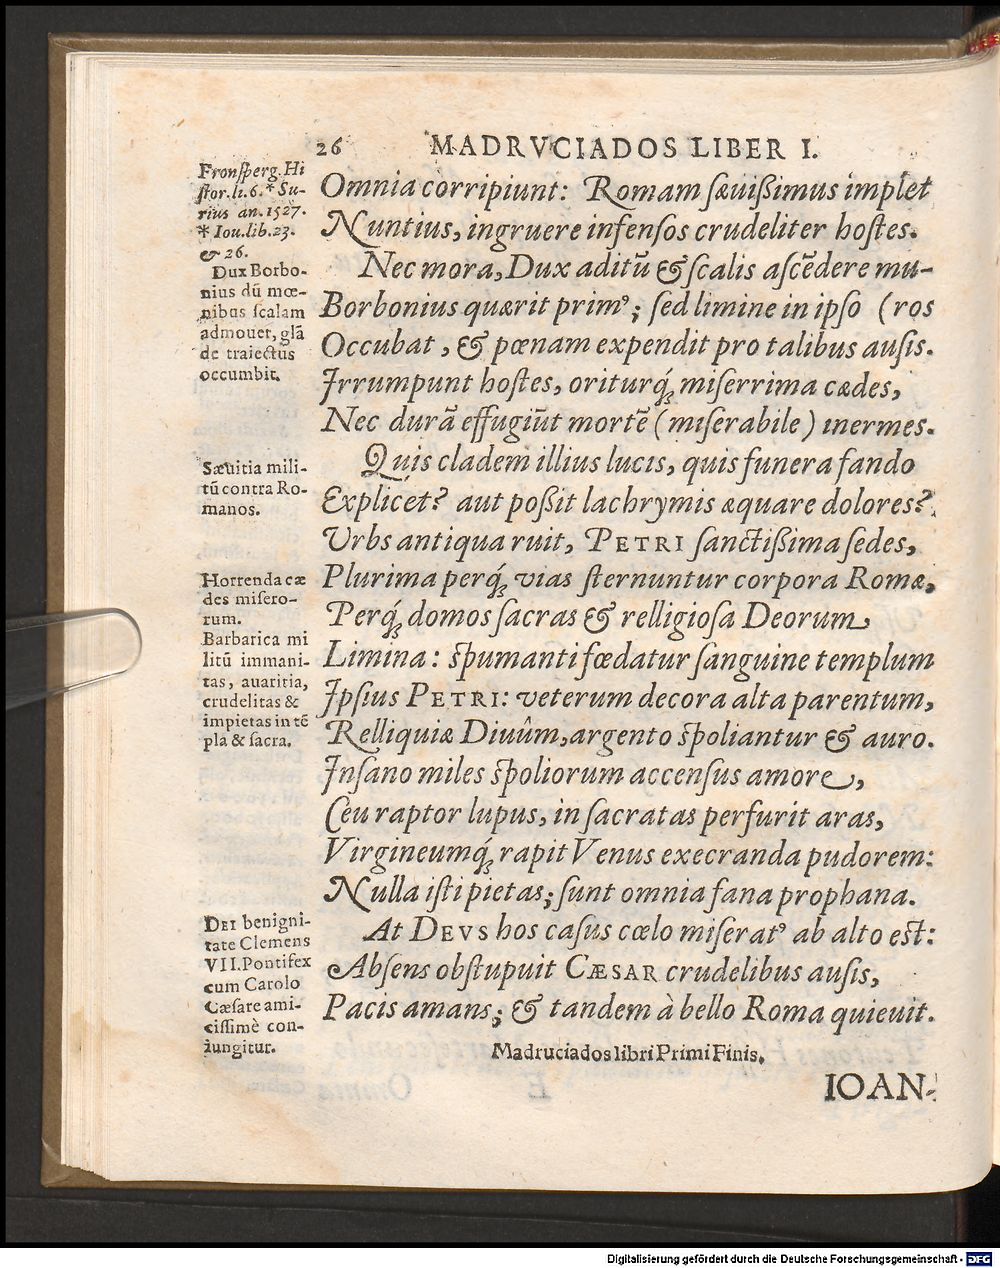 26 MADRVCIADOS LIBER I.
Fronſperg. Hi
ſtor. li. 6. * Su-
rius an. 1527.
* Iou. lib. 23.
& 26.
Dux Borbo-
nius dū mœ-
nibus ſcalam
admouet, glā
de traiectus
occumbit.
Sæuitia mili-
tū contra Ro-
manos.
Horrenda cæ
des miſero-
rum.
Barbarica mi
litū immani-
tas, auaritia,
crudelitas &
impietas in tē
pla & ſacra.
DEI benigni-
tate Clemens
VII. Pontifex
cum Carolo
Cæſare ami-
ciſſimè con-
iungitur.
Omnia corripiunt: Romam ſæuißimus implet
Nuntius, ingruere infenſos crudeliter hoſtes.
Nec mora, Dux aditū & ſcalis aſcēdere mu-
Borbonius quærit prim⁹; ſed limine in ipſo (ros
Occubat, & pœnam expendit pro talibus auſis.
Irrumpunt hoſtes, oriturq́; miſerrima cædes,
Nec durā effugiūt mortē (miſerabile) inermes.
Quis cladem illius lucis, quis funera fando
Explicet? aut poßit lachrymis æquare dolores?
Vrbs antiqua ruit, PETRI ſanctißima ſedes,
Plurima perq́; vias ſternuntur corpora Romæ,
Perq́; domos ſacras & relligioſa Deorum
Limina: ſpumanti fœdatur ſanguine templum
Ipſius PETRI: veterum decora alta parentum,
Relliquiæ Diuûm, argento ſpoliantur & auro.
Inſano miles ſpoliorum accenſus amore,
Ceu raptor lupus, in ſacratas perfurit aras,
Virgineumq́; rapit Venus execranda pudorem:
Nulla iſti pietas; ſunt omnia fana prophana.
At DEVS hos caſus cœlo miſerat⁹ ab alto eſt:
Abſens obſtupuit CÆSAR crudelibus auſis,
Pacis amans; & tandem à bello Roma quieuit.
Madruciados libri Primi Finis.
IOAN-
Digitalisierung gefördert durch die Deutsche Forschungsgemeinschaft - DFG